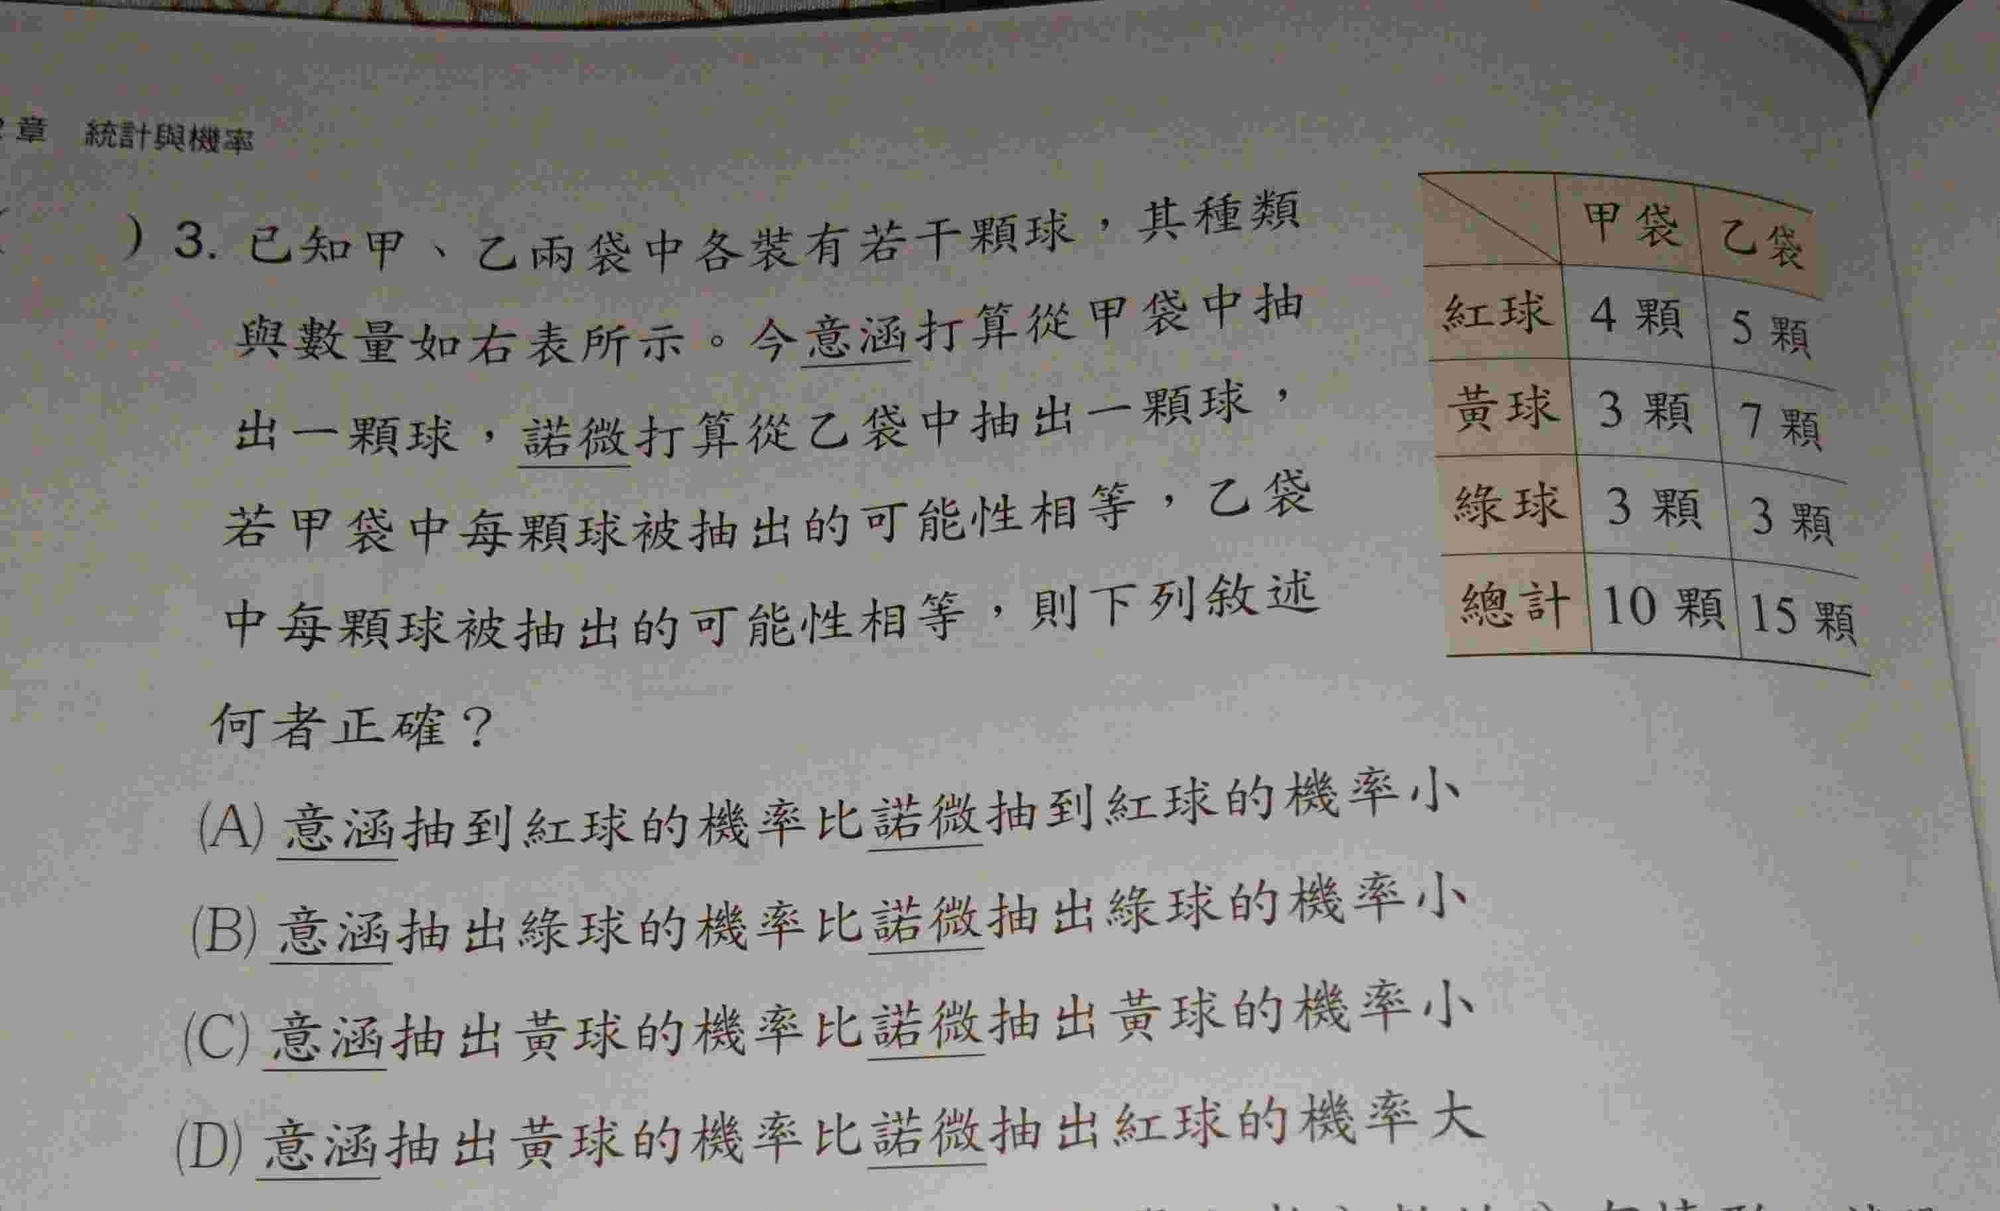 章 統計與機率
( ) 3. 已知甲、乙兩袋中各裝有若干顆球，其種類
與數量如右表所示。今意涵打算從甲袋中抽
出一顆球，諾微打算從乙袋中抽出一顆球，
若甲袋中每顆球被抽出的可能性相等，乙袋
中每顆球被抽出的可能性相等，則下列敘述
何者正確？
甲袋 乙袋
紅球 4 顆 5 顆
黃球 3 顆 7 顆
綠球 3 顆 3 顆
總計 10 顆 15 顆
(A) 意涵抽到紅球的機率比諾微抽到紅球的機率小
(B) 意涵抽出綠球的機率比諾微抽出綠球的機率小
(C) 意涵抽出黃球的機率比諾微抽出黃球的機率小
(D) 意涵抽出黃球的機率比諾微抽出紅球的機率大